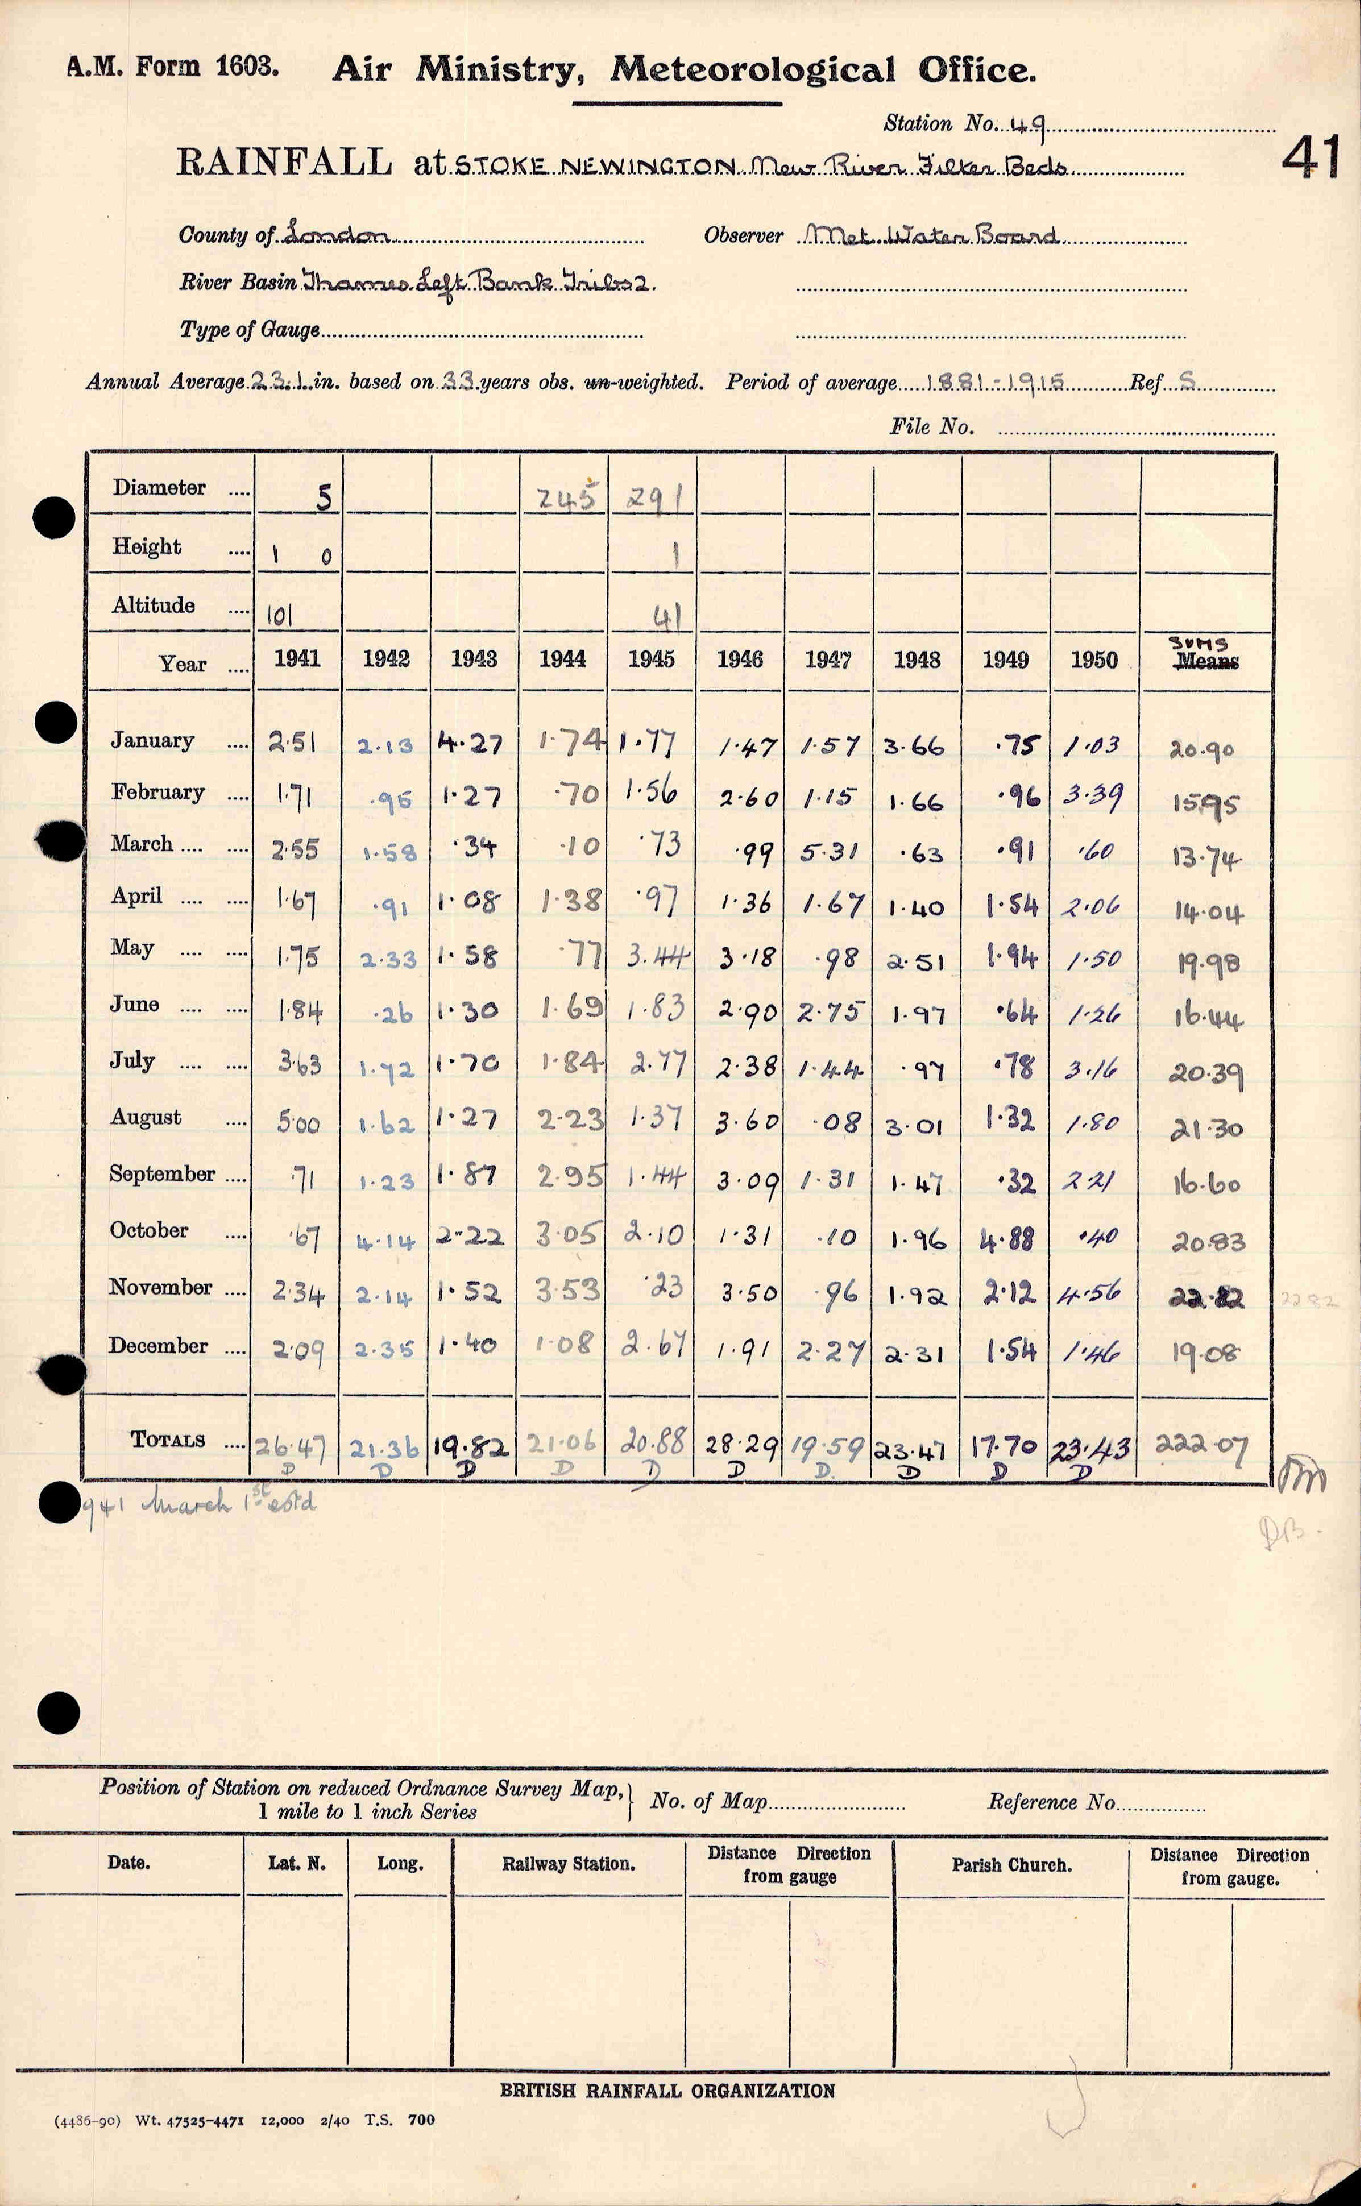 A.M. Form 1603. Air Ministry, Meteorological Office.
Station No. 49
41
RAINFALL at STOKE NEWINGTON New River Filter Beds
County of London Observer Met. Water Board
River Basin Thames Left Bank Tribs 2.
Type of Gauge
Annual Average 23.1 in. based on 33 years obs. un-weighted. Period of average 1881-1915 Ref S
File No.
Diameter .... 5 245 291
Height .... 1 0 1
Altitude .... 101 41
SUMS
Year .... 1941 1942 1943 1944 1945 1946 1947 1948 1949 1950 Means
January .... 2.51 2.13 4.27 1.74 1.77 1.47 1.57 3.66 .75 1.03 20.90
February .... 1.71 .95 1.27 .70 1.56 2.60 1.15 1.66 .96 3.39 15.95
March .... .... 2.55 1.58 .34 .10 .73 .99 5.31 .63 .91 .60 13.74
April .... .... 1.67 .91 1.08 1.38 .97 1.36 1.67 1.40 1.54 2.06 14.04
May .... .... 1.75 2.33 1.58 .77 3.44 3.18 .98 2.51 1.94 1.50 19.98
June .... .... 1.84 .26 1.30 1.69 1.83 2.90 2.75 1.97 .64 1.26 16.44
July .... .... 3.63 1.72 1.70 1.84 2.77 2.38 1.44 .97 .78 3.16 20.39
August .... 5.00 1.62 1.27 2.23 1.37 3.60 .08 3.01 1.32 1.80 21.30
September .... .71 1.23 1.87 2.95 1.44 3.09 1.31 1.47 .32 2.21 16.60
October .... .67 4.14 2.22 3.05 2.10 1.31 .10 1.96 4.88 .40 20.83
November .... 2.34 2.14 1.52 3.53 .23 3.50 .96 1.92 2.12 4.56 22.82 22.82
December .... 2.09 2.35 1.40 1.08 2.67 1.91 2.27 2.31 1.54 1.46 19.08
TOTALS .... 26.47 21.36 19.82 21.06 20.88 28.29 19.59 23.47 17.70 23.43 222.07
D D D D D D D. D D D
941 March 1st estd
DB.
Position of Station on reduced Ordnance Survey Map, No. of Map Reference No.
1 mile to 1 inch Series
Date. Lat. N. Long. Railway Station. Distance Direction from gauge Parish Church. Distance Direction from gauge.
BRITISH RAINFALL ORGANIZATION
(4486-90) Wt. 47525-4471 12,000 2/40 T.S. 700